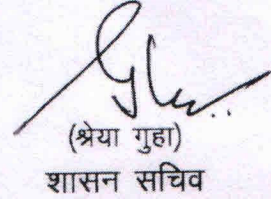 (श्रेया गुहा)
शासन सचिव